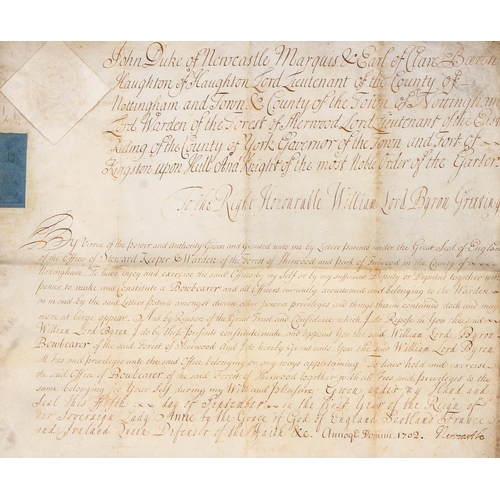 John Duke of Newcastle Marquis & Earl of Clare Baron
Haughton of Haughton Lord Lieutenant of the County of
Nottingham and Town & County of the Town of Nottingham
Lord Warden of the Forest of Sherwood Lord Lieutenant of the East
Riding of the County of York Governor of the Town and Fort of
Kingston upon Hull And Knight of the most Noble Order of the Garter
To the Right Honourable William Lord Byron Greeting
By Virtue of the power and authority Given and Granted unto me by Letters Patents under the Great Seal of England
of the Office of Steward Keeper & Warden of the Forest of Sherwood and park of in the County of
Nottingham To have enjoy and exercise the said Office by my Self or by my sufficient Deputy or Deputies Together with
power to make and Constitute a Bowbearer and all Officers belonging to the Warden
by the said Letters Patents amongst divers other powers priviledges and things therein contained doth and may
more at large appear. And by Reason of the Great Trust and Confidence which I do Repose in You the said
William Lord Byron I do by these presents constitute make and appoint You the said William Lord Byron
Bowbearer of the said Forest of Sherwood And I do hereby Grant unto You the said William Lord Byron
all Fees and priviledges unto the said Office belonging or any ways appertaining To have hold and exercise
the said Office of Bowbearer of the said Forest of Sherwood with all Fees and priviledges to the
same belonging to Your Self during my Will and pleasure Given under my Hand and
Seal this day of September in the first Year of the Reign of
our Sovereign Lady Anne by the Grace of God of England Scotland France
and Ireland Queen Defender of the Faith &c. Annoq Domini 1702. Newcastle